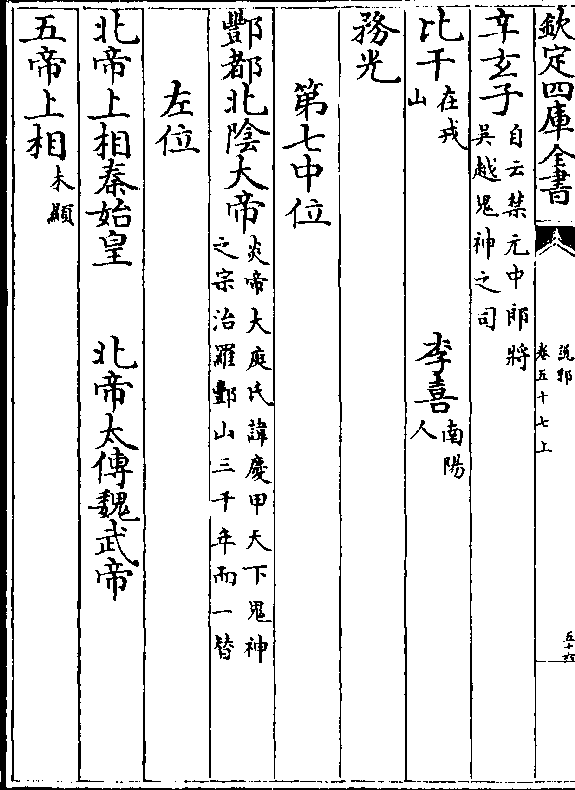 欽定四庫全書
說郛
卷五十七上
五十六
辛玄子自云禁元中郎將
吳越鬼神之司
比干在戎
山
李喜南陽
人
務光
第七中位
酆都北陰大帝炎帝大庭氏諱慶甲天下鬼神
之宗治羅酆山三千年而一替
左位
北帝上相秦始皇 北帝太傅魏武帝
五帝上相未顯